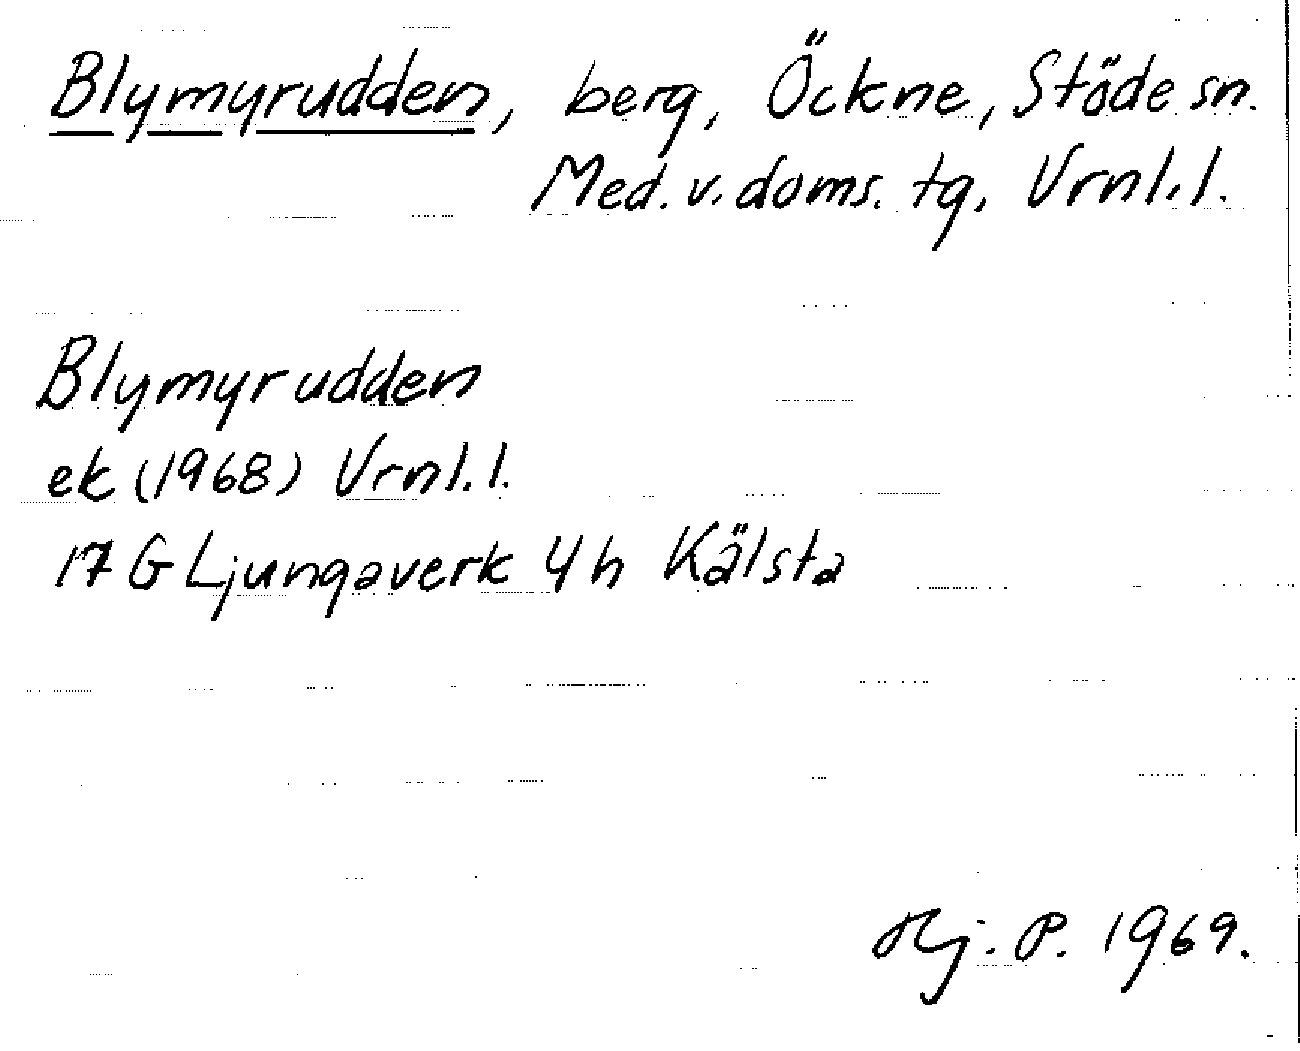 Blymyrudden, berg, Öckne, Stöde sn.
Med. v. doms. tg, Vrnl. l.
Blymyrudden
ek (1968) Vrnl. l.
17 G Ljungaverk 4 h Kälsta
Hj. P. 1969.